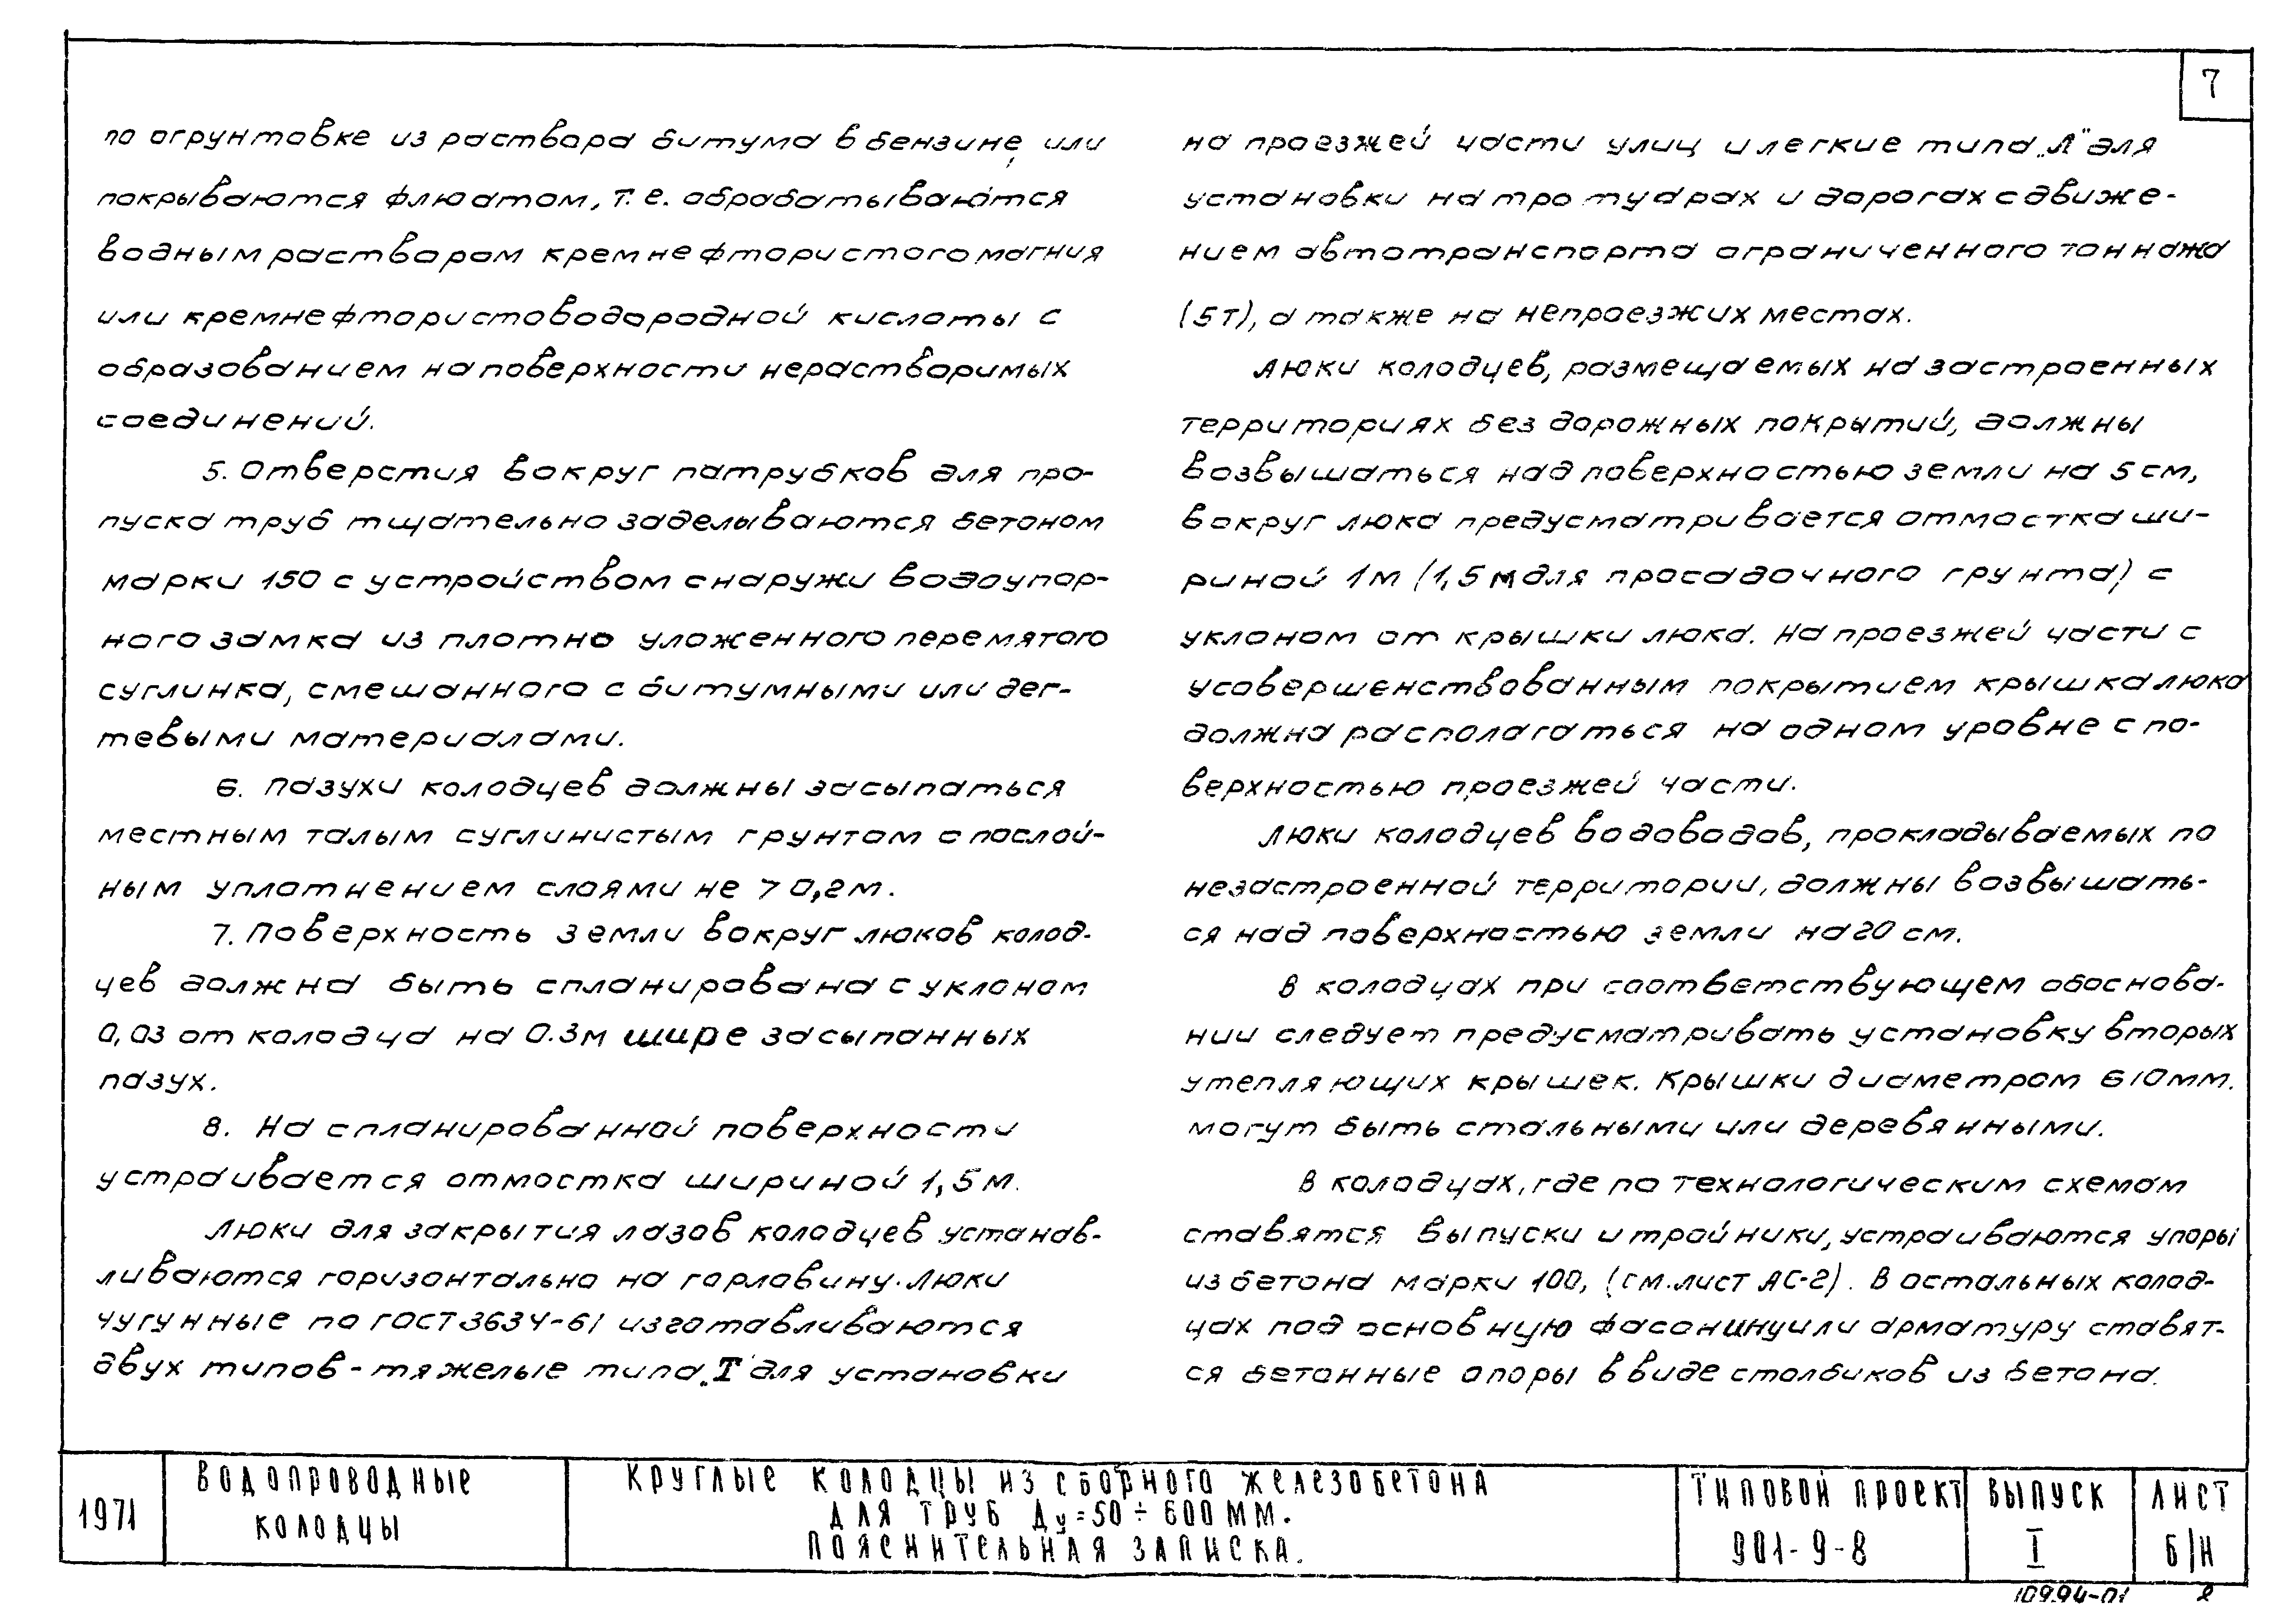 7
по огрунтовке из раствора битума в бензине, или
покрываются флюатом, т.е. обрабатываются
водным раствором кремнефтористого магния
или кремнефтористоводородной кислоты с
образованием на поверхности нерастворимых
соединений.
5. Отверстия вокруг патрубков для про-
пуска труб тщательно заделываются бетоном
марки 150 с устройством снаружи водоупор-
ного замка из плотно уложенного перемятого
суглинка, смешанного с битумными или дег-
тевыми материалами.
6. Пазухи колодцев должны засыпаться
местным талым суглинистым грунтом с послой-
ным уплотнением слоями не > 0,2м.
7. Поверхность земли вокруг люков колод-
цев должна быть спланирована с уклоном
0,03 от колодца на 0.3м шире засыпанных
пазух.
8. На спланированной поверхности
устраивается отмостка шириной 1,5м.
Люки для закрытия лазов колодцев устанав-
ливаются горизонтально на горловину. Люки
чугунные по ГОСТ 3634-61 изготавливаются
двух типов - тяжелые типа „Т" для установки
на проезжей части улиц и легкие типа „Л" для
установки на тротуарах и дорогах с движе-
нием автотранспорта ограниченного тоннажа
(5т), а также на непроезжих местах.
Люки колодцев, размещаемых на застроенных
территориях без дорожных покрытий, должны
возвышаться над поверхностью земли на 5 см,
вокруг люка предусматривается отмостка ши-
риной 1м (1,5м для просадочного грунта) с
уклоном от крышки люка. На проезжей части с
усовершенствованным покрытием крышка люка
должна располагаться на одном уровне с по-
верхностью проезжей части.
Люки колодцев водоводов, прокладываемых по
незастроенной территории, должны возвышать-
ся над поверхностью земли на 20 см.
В колодцах при соответствующем обоснова-
нии следует предусматривать установку вторых
утепляющих крышек. Крышки диаметром 610мм.
могут быть стальными или деревянными.
В колодцах, где по технологическим схемам
ставятся выпуски и тройники, устраиваются упоры
из бетона марки 100, (см. лист АС-2). В остальных колод-
цах под основную фасонину или арматуру ставят-
ся бетонные опоры в виде столбиков из бетона.
1971
ВОДОПРОВОДНЫЕ
КОЛОДЦЫ
КРУГЛЫЕ КОЛОДЦЫ ИЗ СБОРНОГО ЖЕЛЕЗОБЕТОНА
ДЛЯ ТРУБ Ду=50÷600ММ.
ПОЯСНИТЕЛЬНАЯ ЗАПИСКА.
ТИПОВОЙ ПРОЕКТ
901-9-8
ВЫПУСК
I
ЛИСТ
Б/Н
10994-01 8